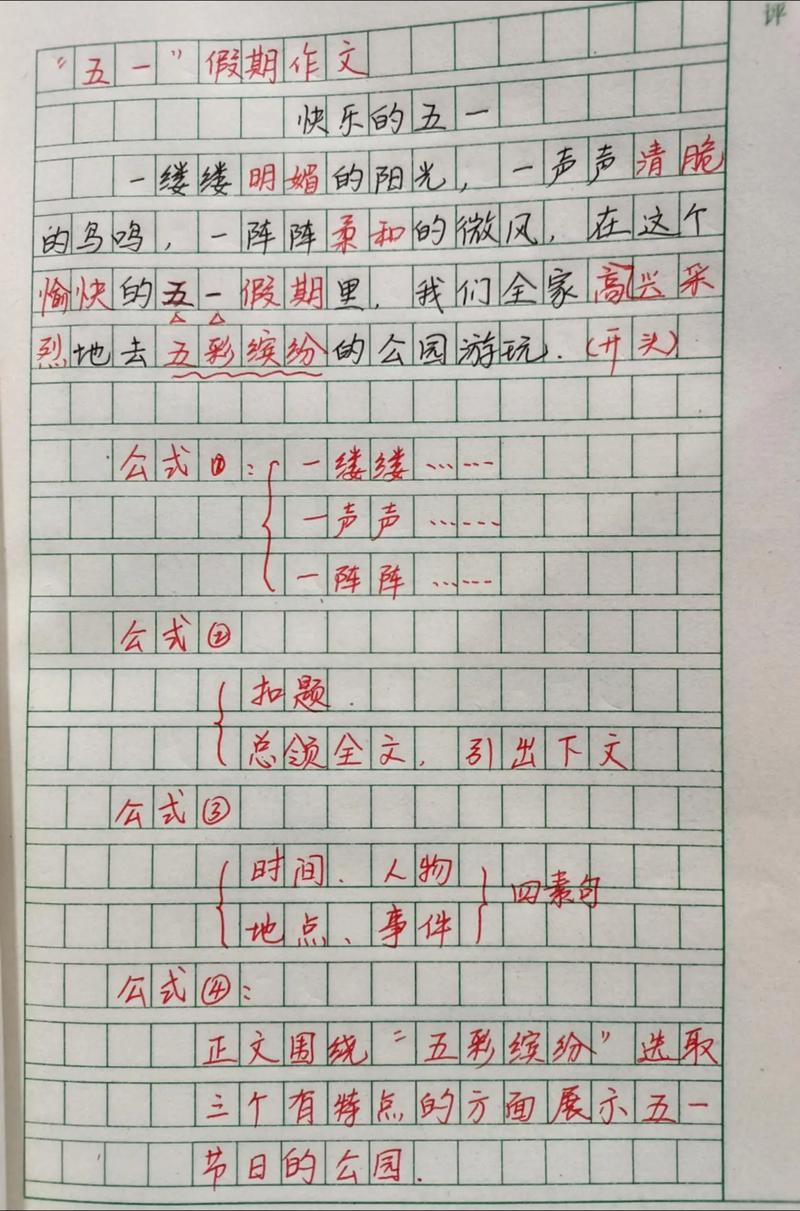 评
“五一”假期作文
快乐的五一
一缕缕明媚的阳光，一声声清脆
的鸟鸣，一阵阵柔和的微风，在这个
愉快的五一假期里，我们全家高兴采
烈地去五彩缤纷的公园游玩.（开头）
公式①：一缕缕……
一声声……
一阵阵……
公式②
扣题.
总领全文，引出下文
公式③
时间、人物
地点、事件 四素句
公式④：
正文围绕“五彩缤纷”选取
三个有特点的方面展示五一
节日的公园.